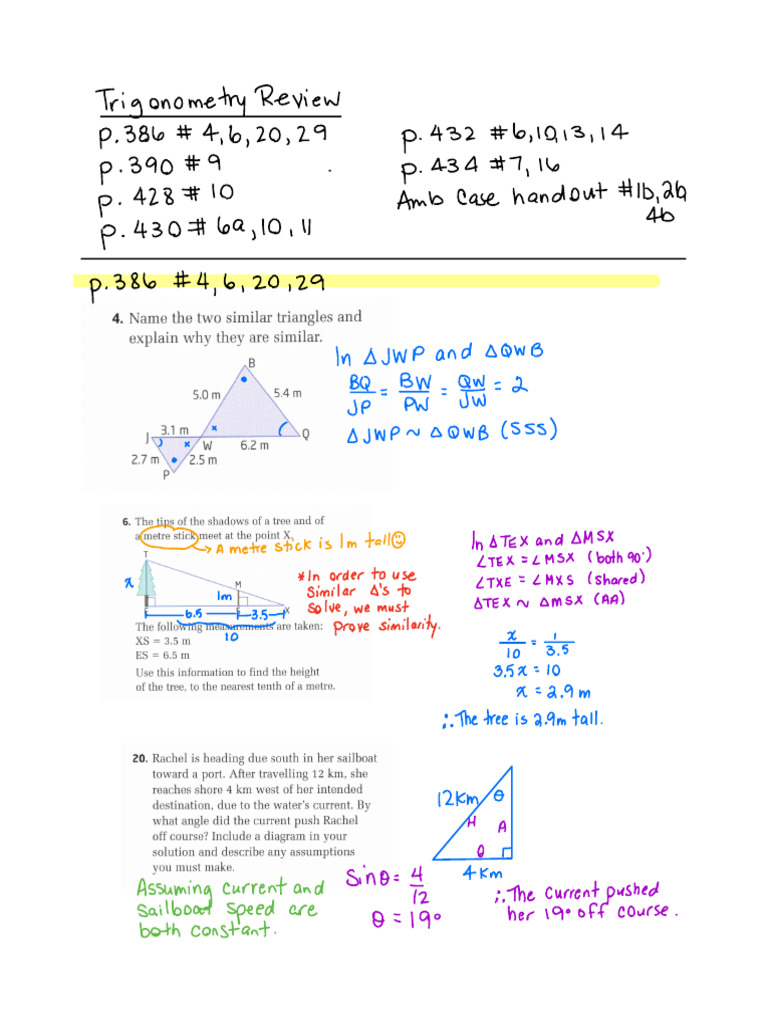 Trigonometry Review
p.386 # 4,6,20,29
p.390 # 9
p. 428 # 10
p.430 # 6a, 10, 11
p. 432 #6,10,13,14
p. 434 #7, 16
Amb Case handout #1b, 2b,
4b
p.386 #4, 6, 20, 29
4. Name the two similar triangles and
explain why they are similar.
B
5.0 m
5.4 m
J
3.1 m
x
W
6.2 m
Q
x
2.7 m
2.5 m
P
In △JWP and △QWB
BQ/JP = BW/PW = QW/JW = 2
△JWP ~ △QWB (SSS)
6. The tips of the shadows of a tree and of
a metre stick meet at the point X.
→ A metre stick is 1m tall
T
x
1m
M
6.5
3.5
X
10
The following measurements are taken:
XS = 3.5 m
ES = 6.5 m
Use this information to find the height
of the tree, to the nearest tenth of a metre.
*In order to use
similar △'s to
solve, we must
prove similarity.
In △TEX and △MSX
∠TEX = ∠MSX (both 90°)
∠TXE = ∠MXS (shared)
△TEX ~ △MSX (AA)
x/10 = 1/3.5
3.5x = 10
x = 2.9 m
∴ The tree is 2.9m tall.
20. Rachel is heading due south in her sailboat
toward a port. After travelling 12 km, she
reaches shore 4 km west of her intended
destination, due to the water's current. By
what angle did the current push Rachel
off course? Include a diagram in your
solution and describe any assumptions
you must make.
12Km
θ
H
A
O
4 Km
Assuming current and
sailboat speed are
both constant.
Sinθ = 4/12
θ = 19°
∴ The current pushed
her 19° off course.